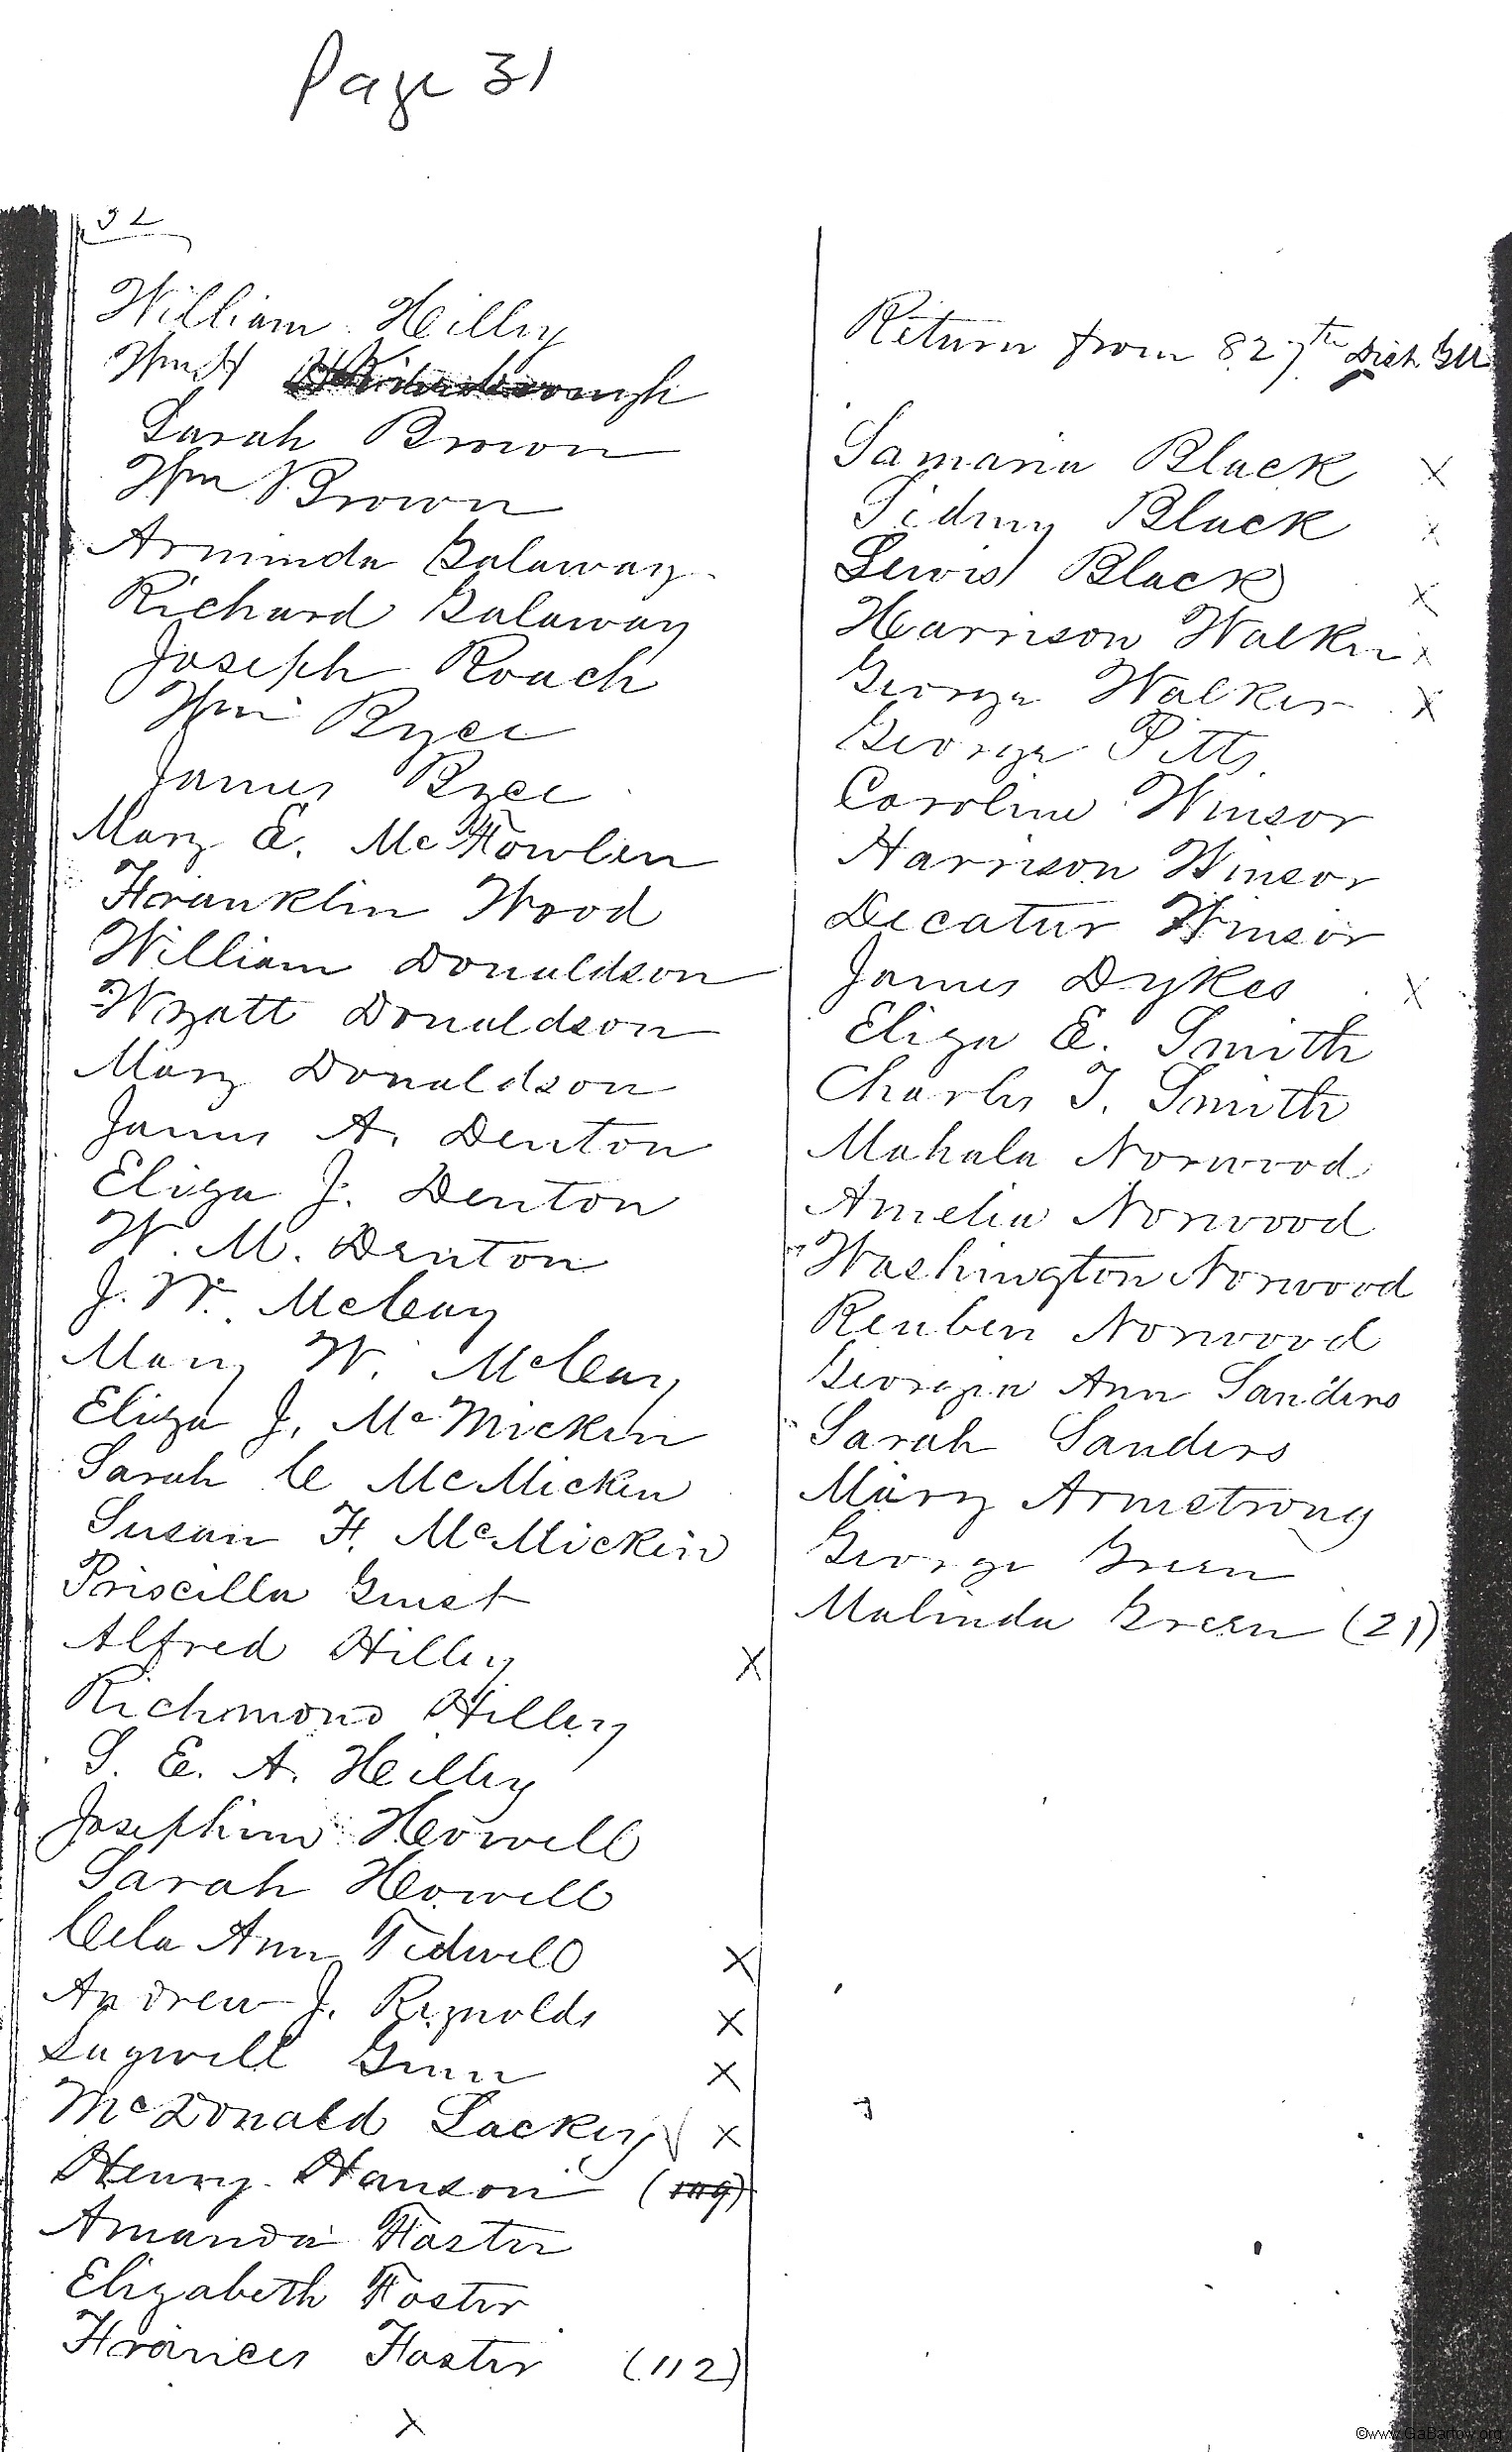 Page 31
32
William Hilley
Wm H
Sarah Brown
Wm Brown
Arminda Galaway
Richard Galaway
Joseph Roach
Wm Byce
James Byce
Mary E. McFowlen
Franklin Wood
William Donaldson
Wyatt Donaldson
Mary Donaldson
James A. Denton
Eliza J. Denton
W. M. Denton
J. W. McCay
Mary W. McCay
Eliza J. McMicken
Sarah C McMicken
Susan F. McMicken
Priscilla Guest
Alfred Hilley X
Richmond Hilley
S. E. A. Hilley
Josephine Howell
Sarah Howell
Cela Ann Tidwell X
Andrew J. Reynolds X
Sugwell Gunn X
McDonald Lackey X
Henry Hanson (109)
Amanda Foster
Elizabeth Foster
Frances Foster (112)
X
Return from 827th Dist GM
Samaria Black X
Sidney Black X
Lewis Black X
Harrison Walker X
George Walker X
George Pitts
Caroline Winsor
Harrison Winsor
Decatur Winsor
James Dykes X
Eliza E. Smith
Charles T. Smith
Mahala Norwood
Amelia Norwood
Washington Norwood
Reuben Norwood
Georgia Ann Sanders
Sarah Sanders
Mary Armstrong
George Green
Malinda Green (21)
©www.GaBartow.org